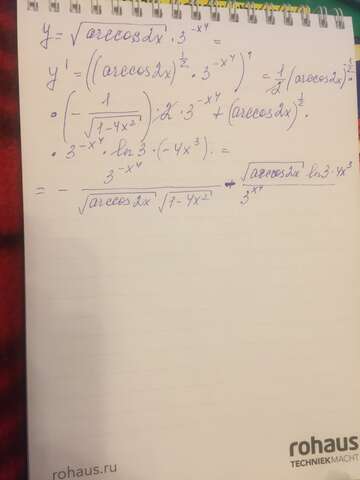 y = √(arccos2x) · 3^(-x⁴) =
y' = ((arccos2x)^(1/2) · 3^(-x⁴))' = 1/2 (arccos2x)^(-1/2) ·
· (- 1/√(1-4x²)) · 2 · 3^(-x⁴) + (arccos2x)^(1/2) ·
· 3^(-x⁴) · ln3 · (-4x³) =
= - 3^(-x⁴)/(√(arccos2x) √(1-4x²)) - (√(arccos2x) ln3·4x³)/3^(x⁴)
rohaus
TECHNIEK MACHT
rohaus.ru